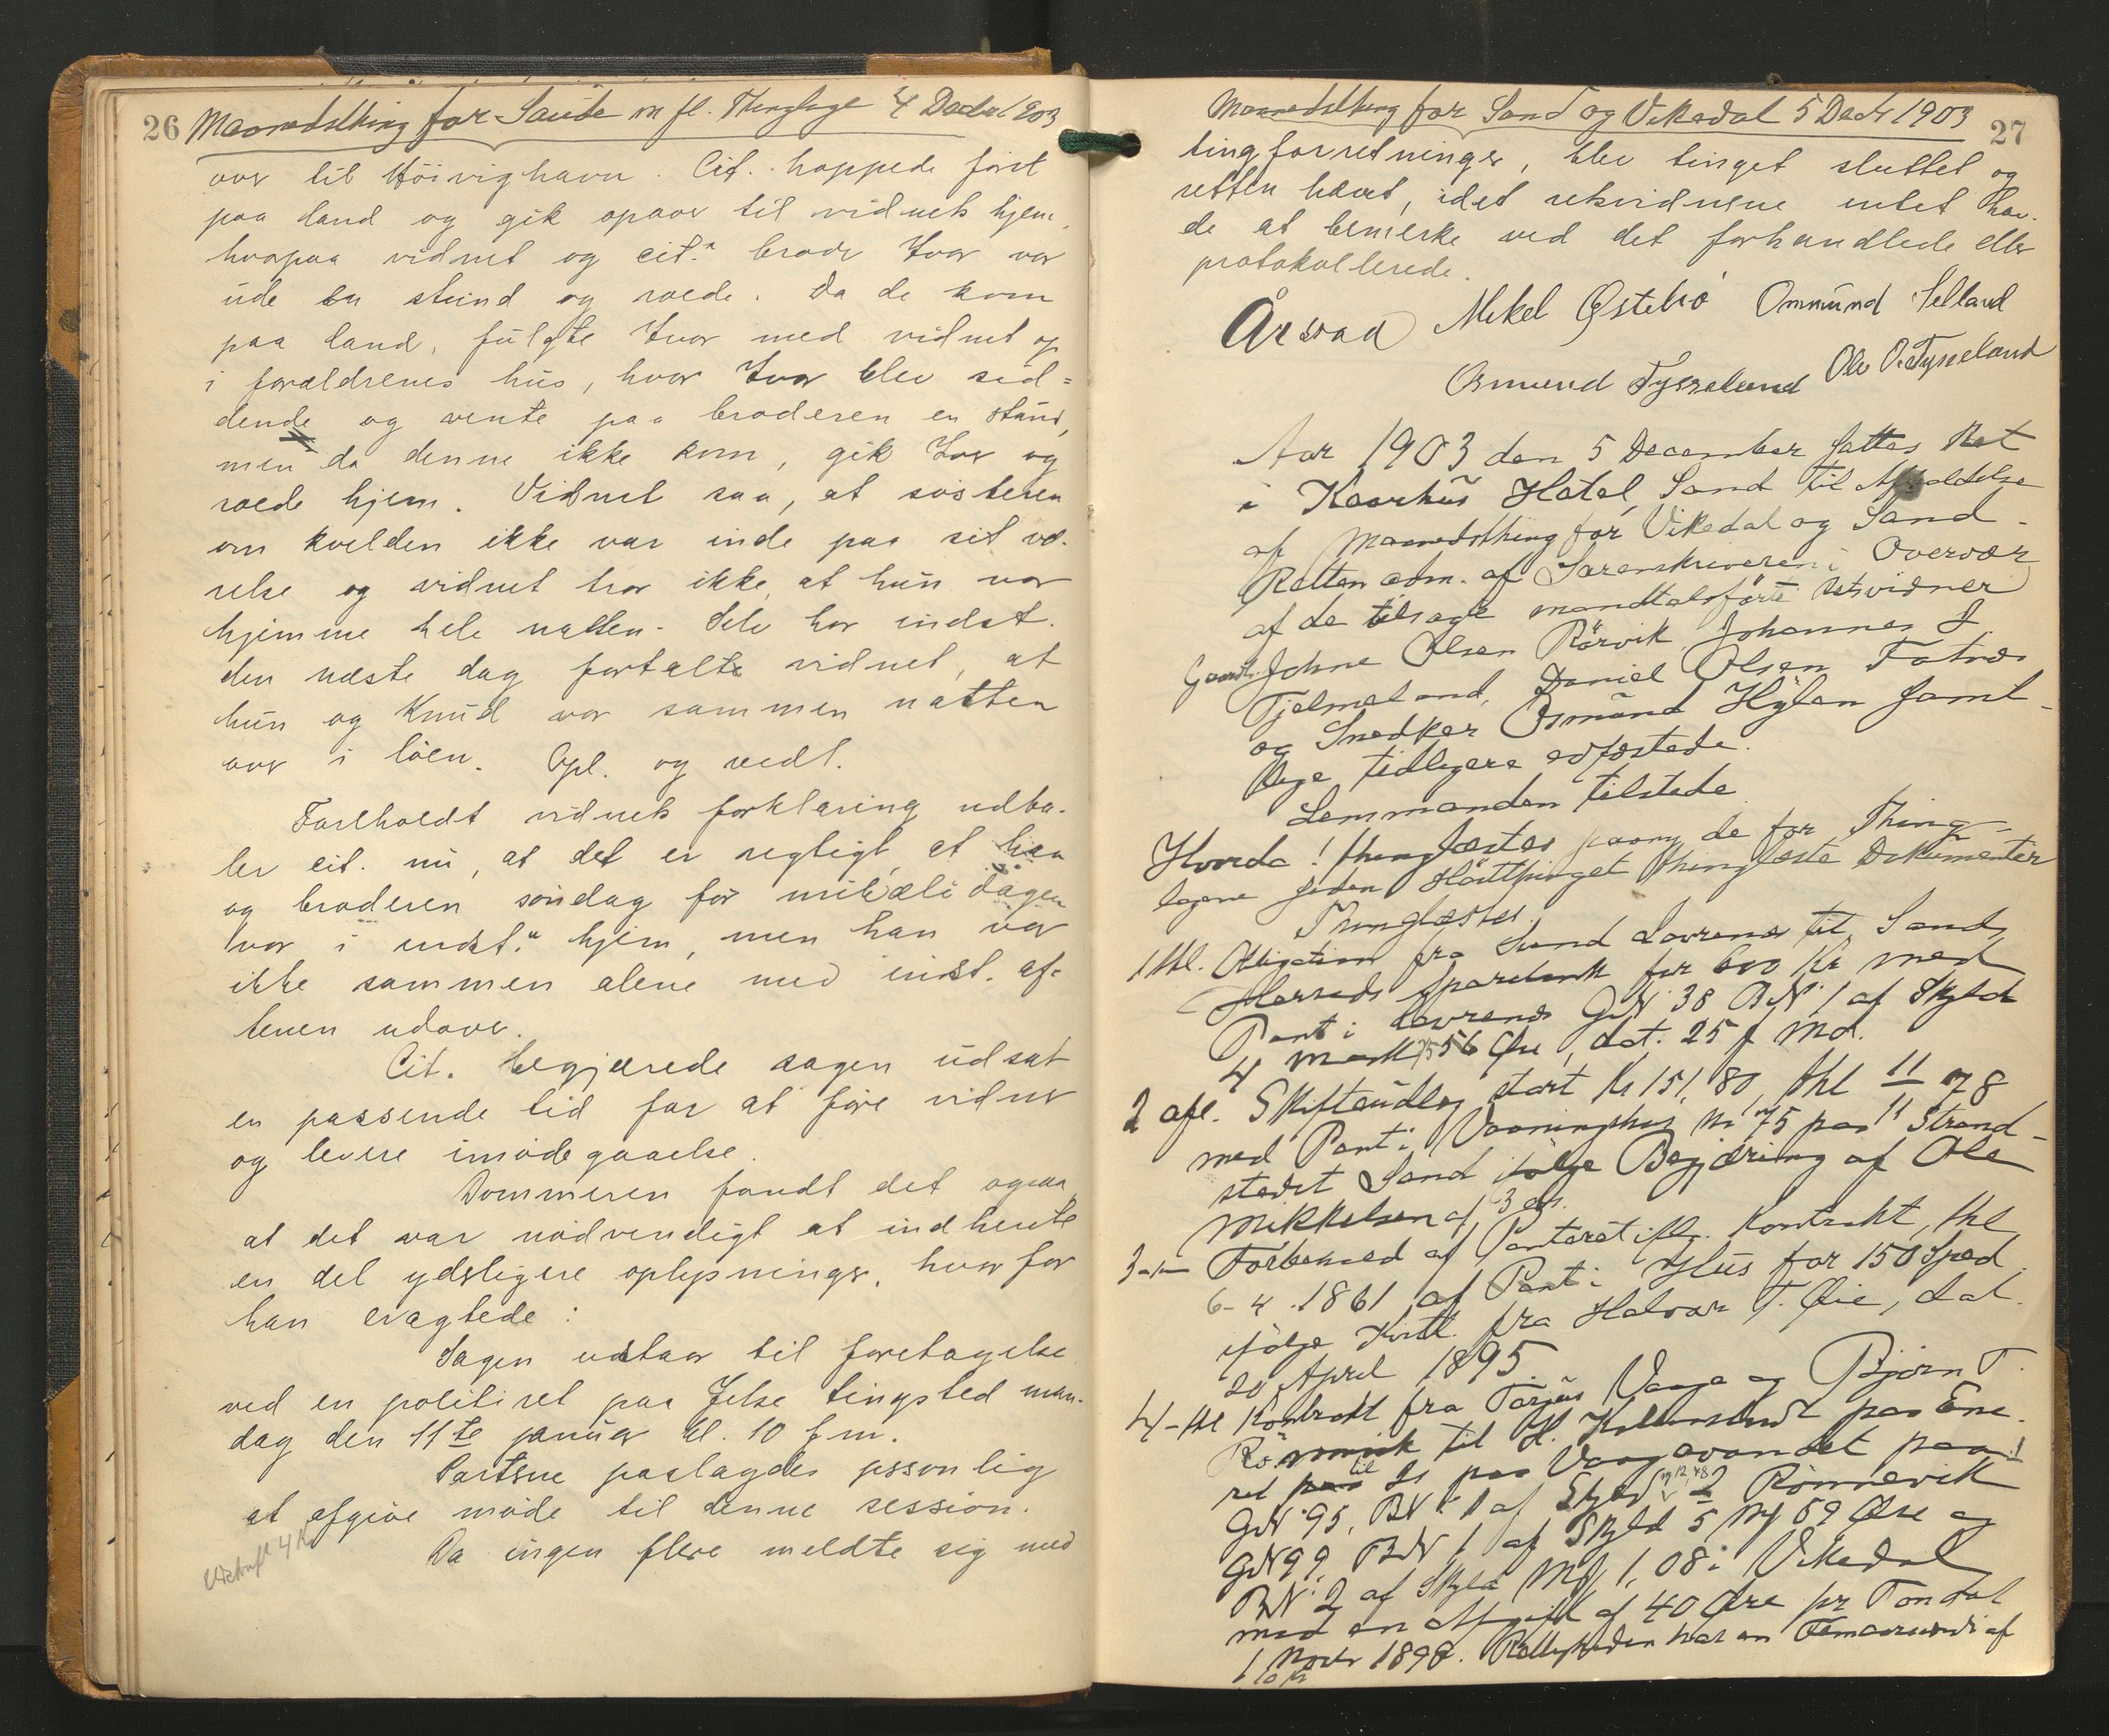 26 Maanedsthing for Saude m fl. Thinglage 4 Decbr 1903
over til Höivighavn. Cit. hoppede först
paa land og gik opover til vidnets hjem,
hvorpaa vidnet og cit.s broder Ivar var
ude en stund og roede. Da de kom
paa land, fulgte Ivar med vidnet op
i forældrenes hus, hvor Ivar blev sid=
dende og vente paa broderen en stund,
men da denne ikke kom, gik Ivar og
roede hjem. Vidnet saa, at sösteren
om kvelden ikke var inde paa sit væ-
relse og vidnet tror ikke, at hun var
hjemme hele natten. Selv har indst.
den næste dag fortalte vidnet, at
hun og Knud var sammen natten
over i löen. Opl. og vedt.
Foreholdt vidnets forklaring udta-
ler cit. nu, at det er rigtigt, at han
og broderen söndag för mikæli dagen
var i indst.s hjem, men han var
ikke sammen alene med indst. af-
tenen udover.
Cit. begjærede sagen udsat
en passende tid for at före vidner
og levere imödegaaelse.
Dommeren fandt det ogsaa
at det var nödvendigt at indhente
en del yderligere oplysninger, hvorfor
han eragtede:
Sagen udstaar til foretagelse
ved en politiret paa Jelse tingsted man-
dag den 11te januar kl. 10 f.m.
Parterne paalagdes personlig
at afgive möde til denne session.
Da ingen flere meldte sig med
Maanedsthing for Sand og Vikedal 5 Decbr 1903 27
tingforretninger, blev tinget sluttet og
retten hævet, idet retsvidnene intet hav-
de at bemerke ved det forhandlede eller
protokollerede.
Årstad Mikel Østebö Ommund Selland
Osmund Tysseland Ole O. Tysseland
Aar 1903 den 5 December sattes Ret
i Kaarhus Hotel, Sand til Afholdelse
af Maanedsthing for Vikedal og Sand.
Retten adm. af Sorenskriveren i Overvær
af de tilsagte mandtalsførte Retsvidner
Gaardb. Johne Olsen Rörvik Johannes J.
Tjelmeland, Daniel Olsen Fatnes
og Snedker Osmund Hylen samt-
lige tidligere edfæstede.
Lensmanden tilstede
Hvorda! thinglæstes paany de for Thing-
lagene siden Hösttinget thinglæste Dokumenter
Thinglæstes.
1 thl. Obligation fra Svend Lovrenes til Sands
Herreds Sparebank for 600 Kr med
Pant i Lovrenes GN 38 BN 1 af Skyld
4 Mark 56 Øre, dat. 25 f. Md.
2 afl. Skifteudlæg stort Kr 151,80, thl 11 78
med Pant i Vaaningshus No 75 paa Strand-
stedet Sand ifölge Begjæring af Ole
Mikkelsen af 3 ds.
3 – Forbehold af Panteret ifl. Kontrakt, thl
6-4.1861 af Pant i Hus for 150 Sped.
ifölge Kvitt. fra Halvor T. Øie, dat.
20 April 1895.
4 - thl Kontrakt fra Torjus Vaage og Björn T.
til H. paa Ene-
ret til Is paa Vaagevandet paa
GN 95, BN 1 af Skyld 2 Rönnevik
GN 99, BN 1 af Skyld 5 Mk 59 Øre og
BN 2 af Skyld Mk 1,08 i Vikedal
med en Afgift af 40 Øre pr Ton dat
1 Novbr 1898. Rettigheden har en Femaarsværdi af
10 Kr